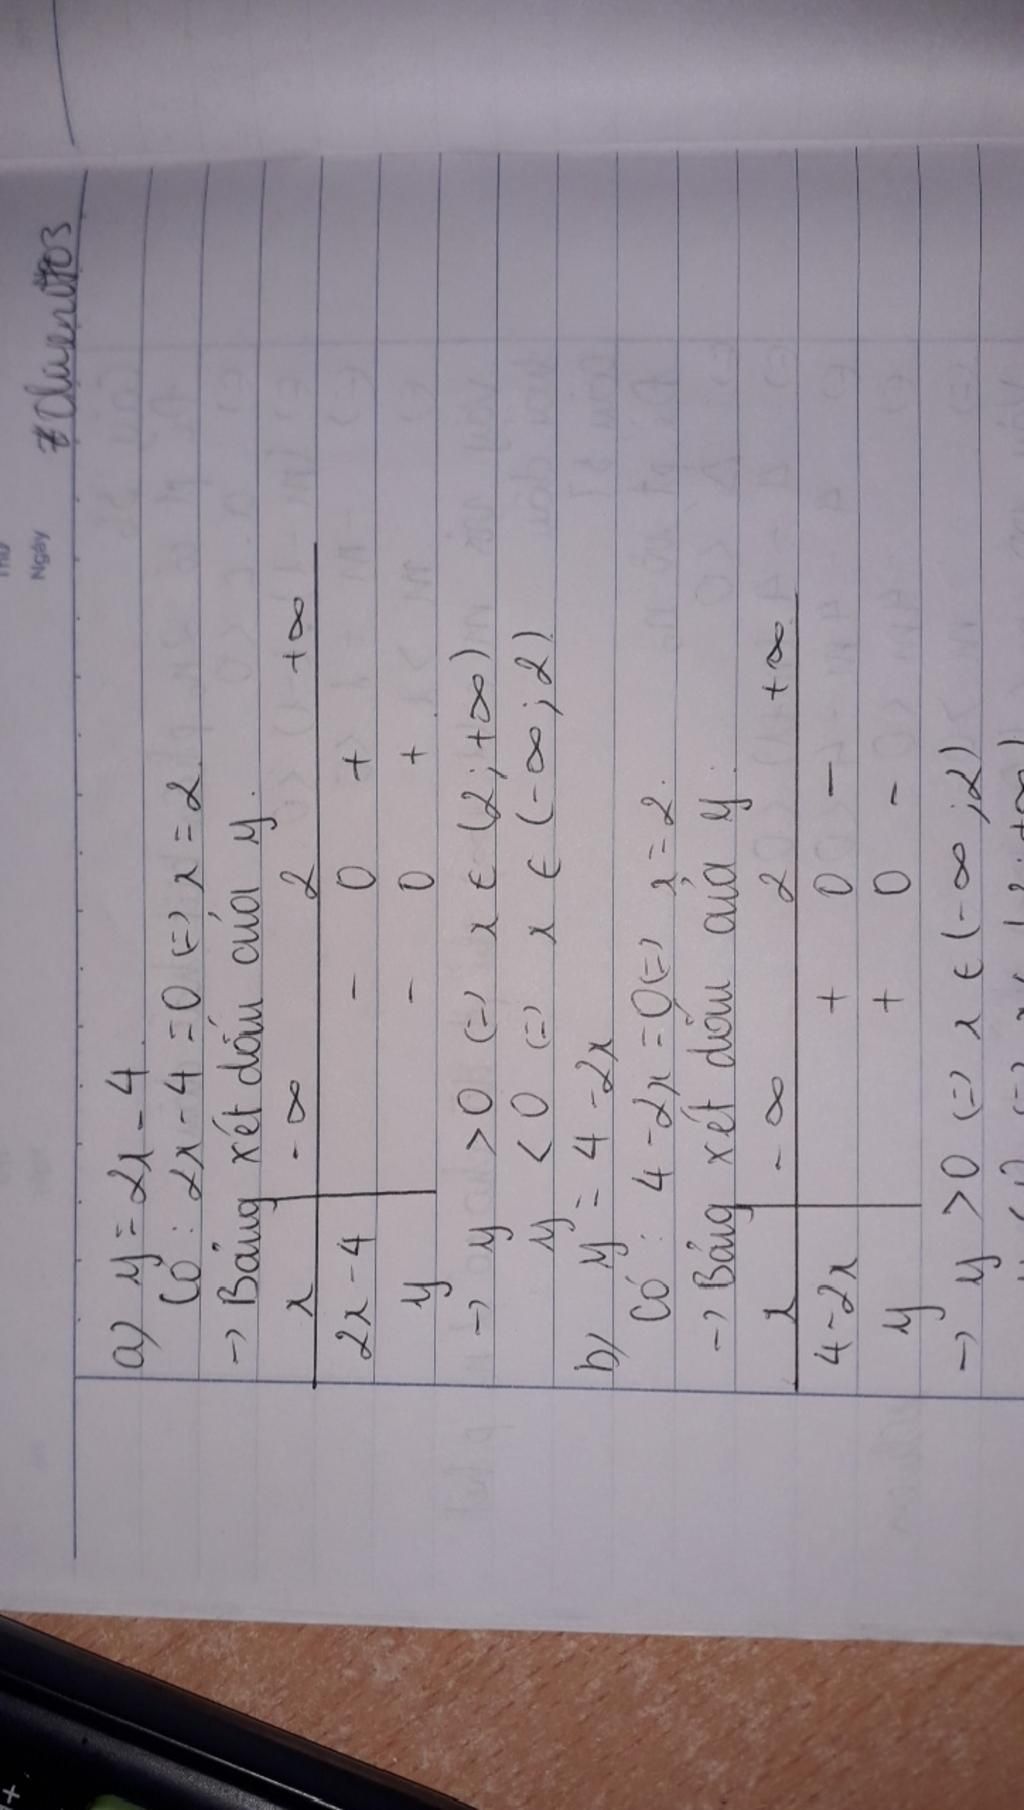 Ngày
a) y = 2x - 4
Có : 2x - 4 = 0 (=) x = 2
→ Bảng xét dấu của y.
x -∞ 2 +∞
2x - 4 - 0 +
y - 0 +
→ y > 0 (=) x ∈ (2; +∞)
y < 0 (=) x ∈ (-∞; 2)
b) y = 4 - 2x
Có : 4 - 2x = 0 (=) x = 2
→ Bảng xét dấu của y.
x -∞ 2 +∞
4 - 2x + 0 -
y + 0 -
→ y > 0 (=) x ∈ (-∞; 2)